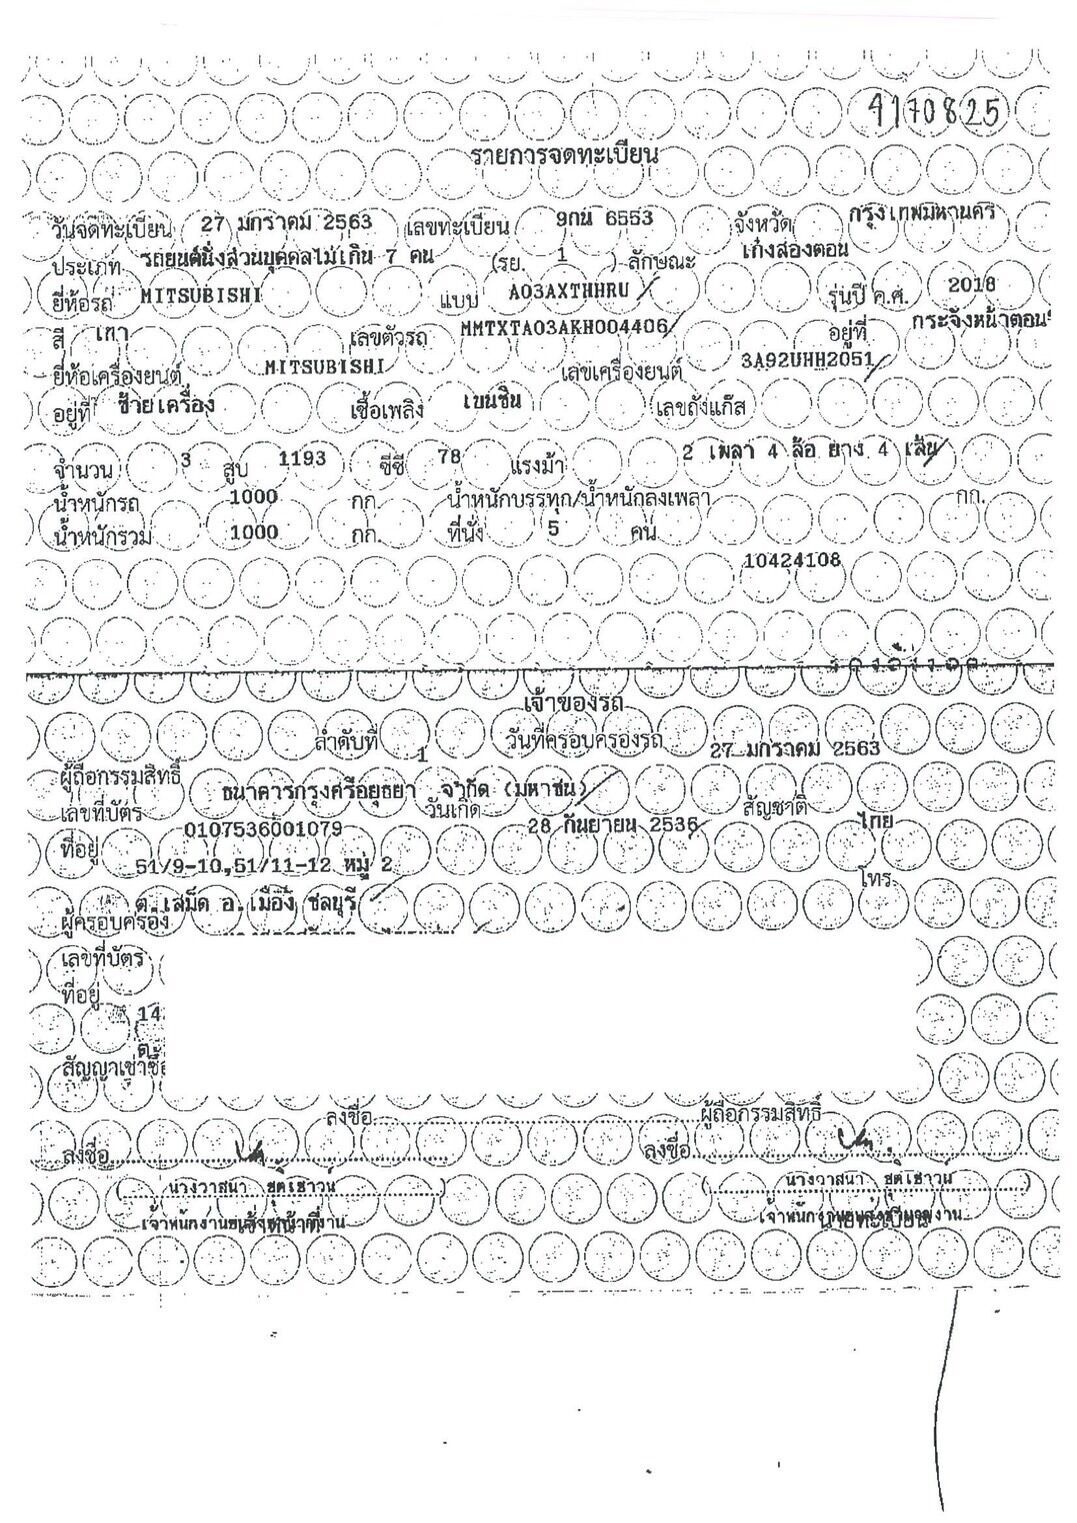 4170825
รายการจดทะเบียน
วันจดทะเบียน 27 มกราคม 2563 เลขทะเบียน 9กน 6553 จังหวัด กรุงเทพมหานคร
ประเภท รถยนต์นั่งส่วนบุคคลไม่เกิน 7 คน (รย. 1 ) ลักษณะ เก๋งสองตอน
ยี่ห้อรถ MITSUBISHI แบบ A03AXTHHRU รุ่นปี ค.ศ. 2018
สี เทา เลขตัวรถ MMTXTA03AKH004406 อยู่ที่ กระจังหน้าตอน
ยี่ห้อเครื่องยนต์ MITSUBISHI เลขเครื่องยนต์ 3A92UHH2051
อยู่ที่ ซ้ายเครื่อง เชื้อเพลิง เบนซิน เลขถังแก๊ส
จำนวน 3 สูบ 1193 ซีซี 78 แรงม้า 2 เพลา 4 ล้อ ยาง 4 เส้น
น้ำหนักรถ 1000 กก. น้ำหนักบรรทุก/น้ำหนักลงเพลา กก.
น้ำหนักรวม 1000 กก. ที่นั่ง 5 คน
10424108
เจ้าของรถ
ลำดับที่ 1 วันที่ครอบครองรถ 27 มกราคม 2563
ผู้ถือกรรมสิทธิ์ ธนาคารกรุงศรีอยุธยา จำกัด (มหาชน)
เลขที่บัตร 0107536001079 วันเกิด 28 กันยายน 2536 สัญชาติ ไทย
ที่อยู่ 51/9-10,51/11-12 หมู่ 2
ต.เสม็ด อ.เมือง ชลบุรี โทร.
ผู้ครอบครอง
เลขที่บัตร
ที่อยู่
14
ต.
สัญญาเช่าซื้อ
ลงชื่อ ผู้ถือกรรมสิทธิ์
ลงชื่อ ลงชื่อ
(นางวาสนา ) (นางวาสนา )